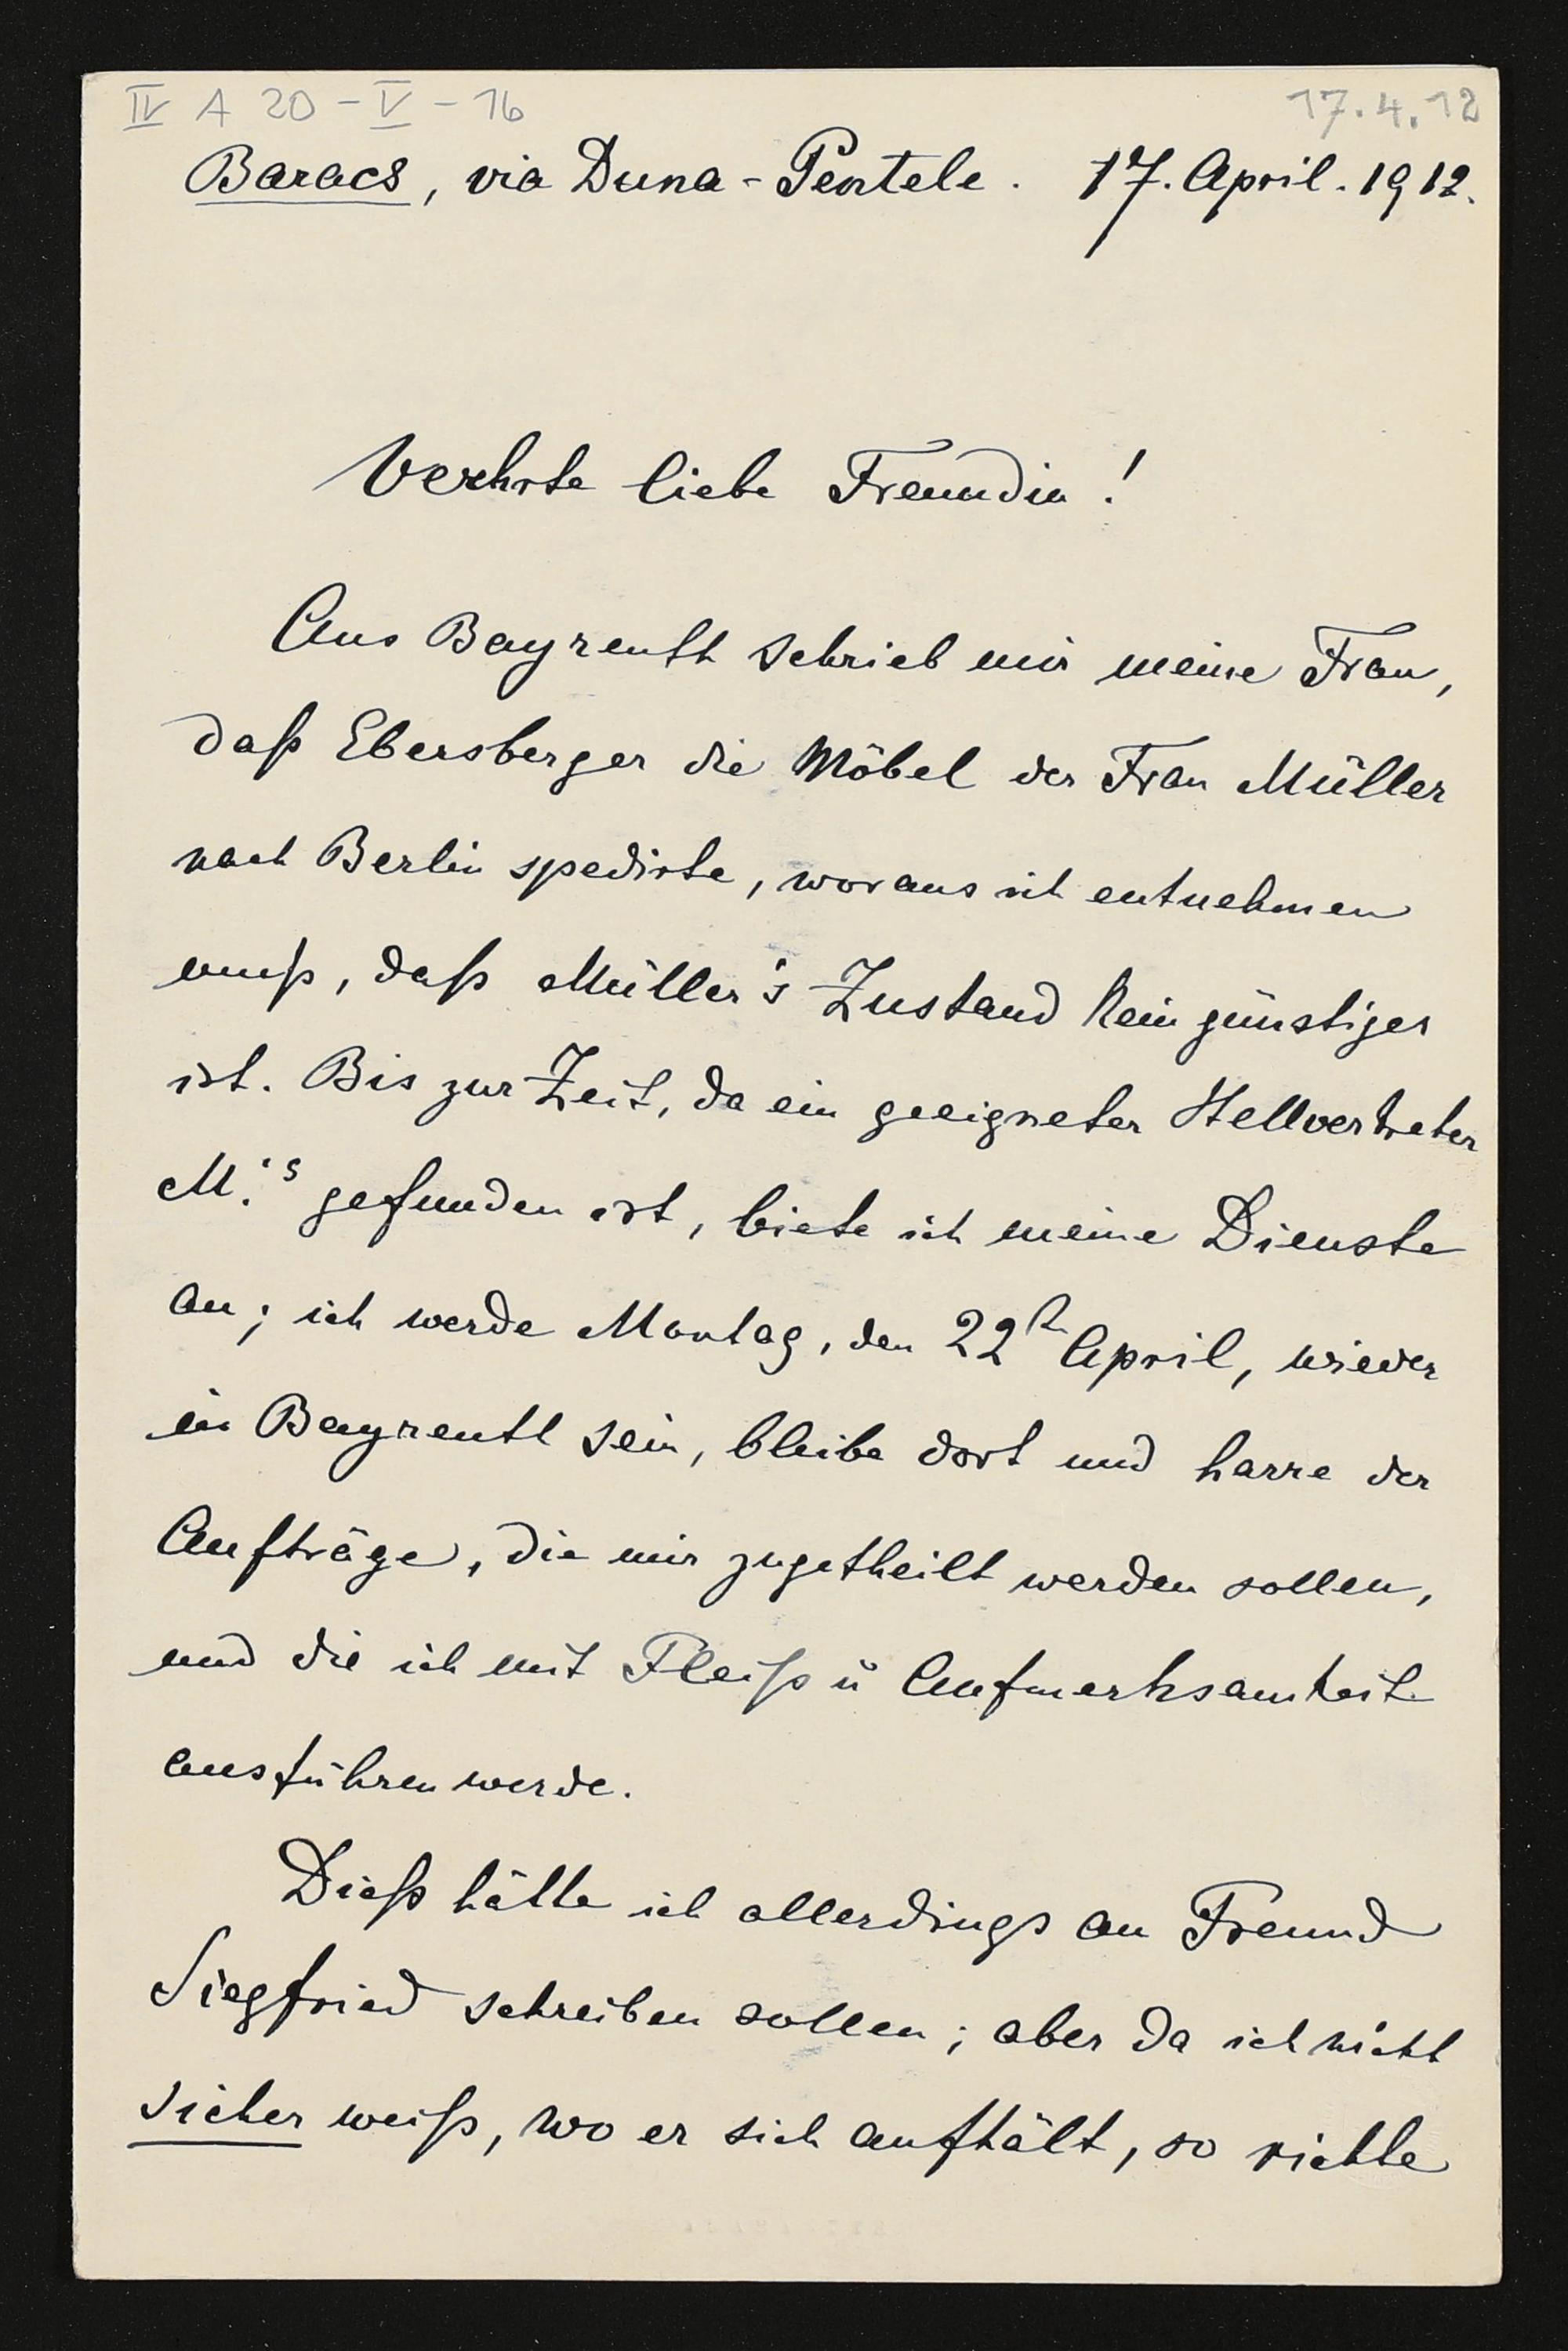 IV A 20 - V - 16
17.4.12
Baracs, via Duna-Pentele. 17. April. 1912.
Verehrte liebe Freundin!
Aus Bayreuth schrieb mir meine Frau,
daß Ebersberger die Möbel der Frau Müller
nach Berlin spedirte, woraus ich entnehmen
muß, daß Müller's Zustand kein günstiger
ist. Bis zur Zeit, da ein geeigneter Stellvertreter
M.'s gefunden ist, biete ich meine Dienste
an; ich werde Montag, den 22n April, wieder
in Bayreuth sein, bleibe dort und harre der
Aufträge, die mir zugetheilt werden sollen,
und die ich mit Fleiß u Aufmerksamkeit
ausführen werde.
Dieß hätte ich allerdings an Freund
Siegfried schreiben sollen; aber da ich nicht
sicher weiß, wo er sich aufhält, so richte